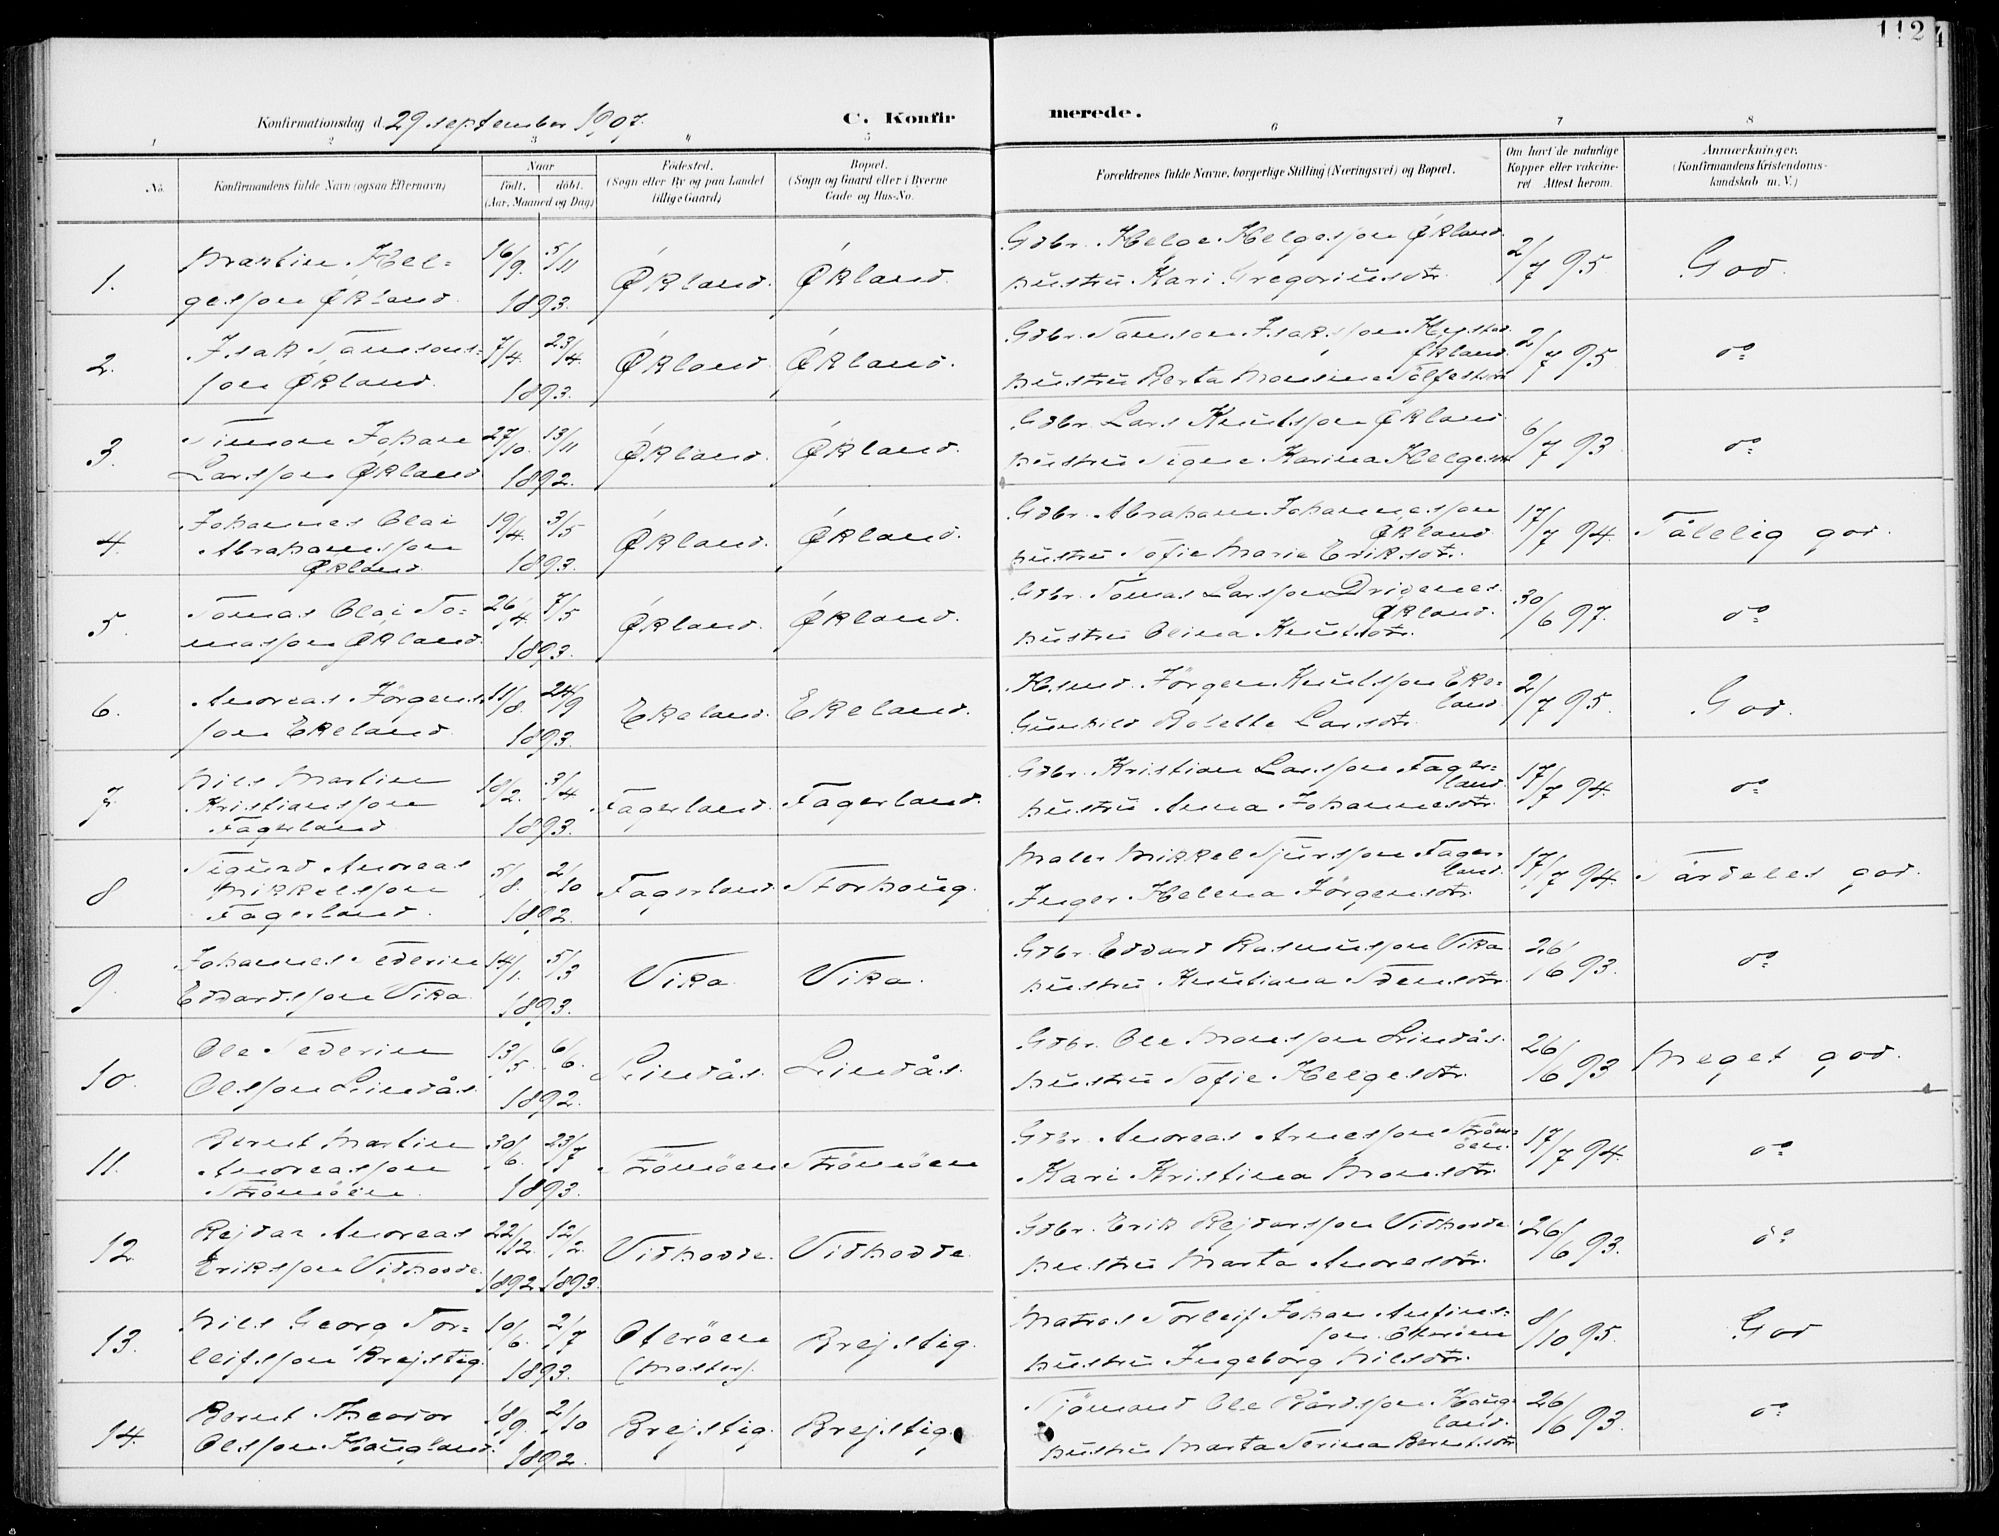 112
Konfirmationsdag d. 29 september 1907.
C. Konfirmerede.
1 2 3 4 5 6 7 8
No.
Konfirmandens fulde Navn (ogsaa Efternavn)
Naar
født. døbt.
(Aar, Maaned og Dag)
Fødested.
(Sogn eller By og paa Landet
tillige Gaard)
Bopæl.
(Sogn og Gaard eller i Byerne
Gade og Hus-No.
Forældrenes fulde Navne, borgerlige Stilling (Næringsvei) og Bopæl.
Om havt de naturlige
Kopper eller vaccine-
ret Attest herom.
Anmærkninger.
(Konfirmandens Kristendoms-
kundskab m. V.)
1. Martin Hel-
gesson Økland. 16/9. 5/11 1893. Økland. Økland.
Gdbr. Helge Helgesson Økland.
hustru Kari Gregoriusdtr. 2/7 95. God.
2. Isak Samsons-
son Økland. 7/4. 23/4 1893. Økland. Økland.
Gdbr. Samson Isaksson
Økland.
hustru Berta Monsine 2/7 95. do
3. Simon Johan
Larsson Økland 27/10. 13/11 1892. Økland. Økland.
Gdbr. Lars Knutsson Økland
hustru Signe Karina Helgesdtr 6/7 93. do
4. Johannes Olai
Abrahamsson
Økland. 19/4. 3/5 1893. Økland. Økland.
Gdbr. Abraham Johannesson
Økland
hustru Sofie Marie Eriksdtr. 17/7 94. Tålelig god.
5. Tomas Olai To-
masson Økland. 26/4. 7/5 1893. Økland. Økland.
Gdbr. Tomas Larsson
Økland.
hustru Olina Knutsdtr. 30/6 97. do
6. Andreas Jørgens-
son Ekeland. 11/8. 24/9 1893. Ekeland. Ekeland.
Husmd. Jørgen Knutsson Eke-
land.
Gunhild Bolette Larsdtr. 2/7 95. God.
7. Nils Martin
Kristiansson
Fagerland 10/2. 3/4 1893. Fagerland. Fagerland.
Gdbr. Kristian Larsson Fager-
land.
hustru Anna Johannesdtr. 17/7 94. do
8 Sigurd Andreas
Mikkelsson
Fagerland. 5/8. 2/10 1892. Fagerland. Storhoug.
Maler Mikkel Sjursson Fager-
land.
Inger Helena Jørgensdtr. 17/7 94. Særdeles god.
9. Johannes Severin
Edvardsson Vika. 14/1. 5/3 1893. Vika. Vika.
Gdbr. Edvard Rasmusson Vika.
hustru Kristiana Svensdtr. 26/6 93. do
10. Ole Severin
Olsson Lindås. 13/5. 6/6. 1892. Lindås. Lindås.
Gdbr. Ole Monsson Lindås.
hustru Sofie Helgesdtr. 26/6 93 Meget god.
11. Bernt Martin
Andreasson
Strømøen. 30/6. 23/7 1893. Strømøen Strømøen
Gdbr. Andreas Arnesson Strøm-
øen.
Kari Kristina Monsdtr. 17/7 94. do
12. Rejdar Andreas
Eriksson Vidhovde. 22/12. 1892. 12/2. 1893. Vidhovde. Vidhovde.
Gdbr. Erik Rejdarsson Vidhovde.
hustru Marta Andresdtr. 26/6 93. do
13. Nils Georg Tor-
leifsson Brejstig. 10/6. 2/7 1893. Oterøen
(Moster). Brejstig.
Matros Torleif Johan Anfins-
son Oterøen
hustru Ingeborg Nilsdtr. 8/10 95. God
14. Bernt Theodor
Olsson Haugland. 18/9. 2/10 1892. Brejstig. Brejstig.
Sjømand Ole Bårdsson Haug-
land.
hustru Marta Serina Berntsdtr 26/6 93. do